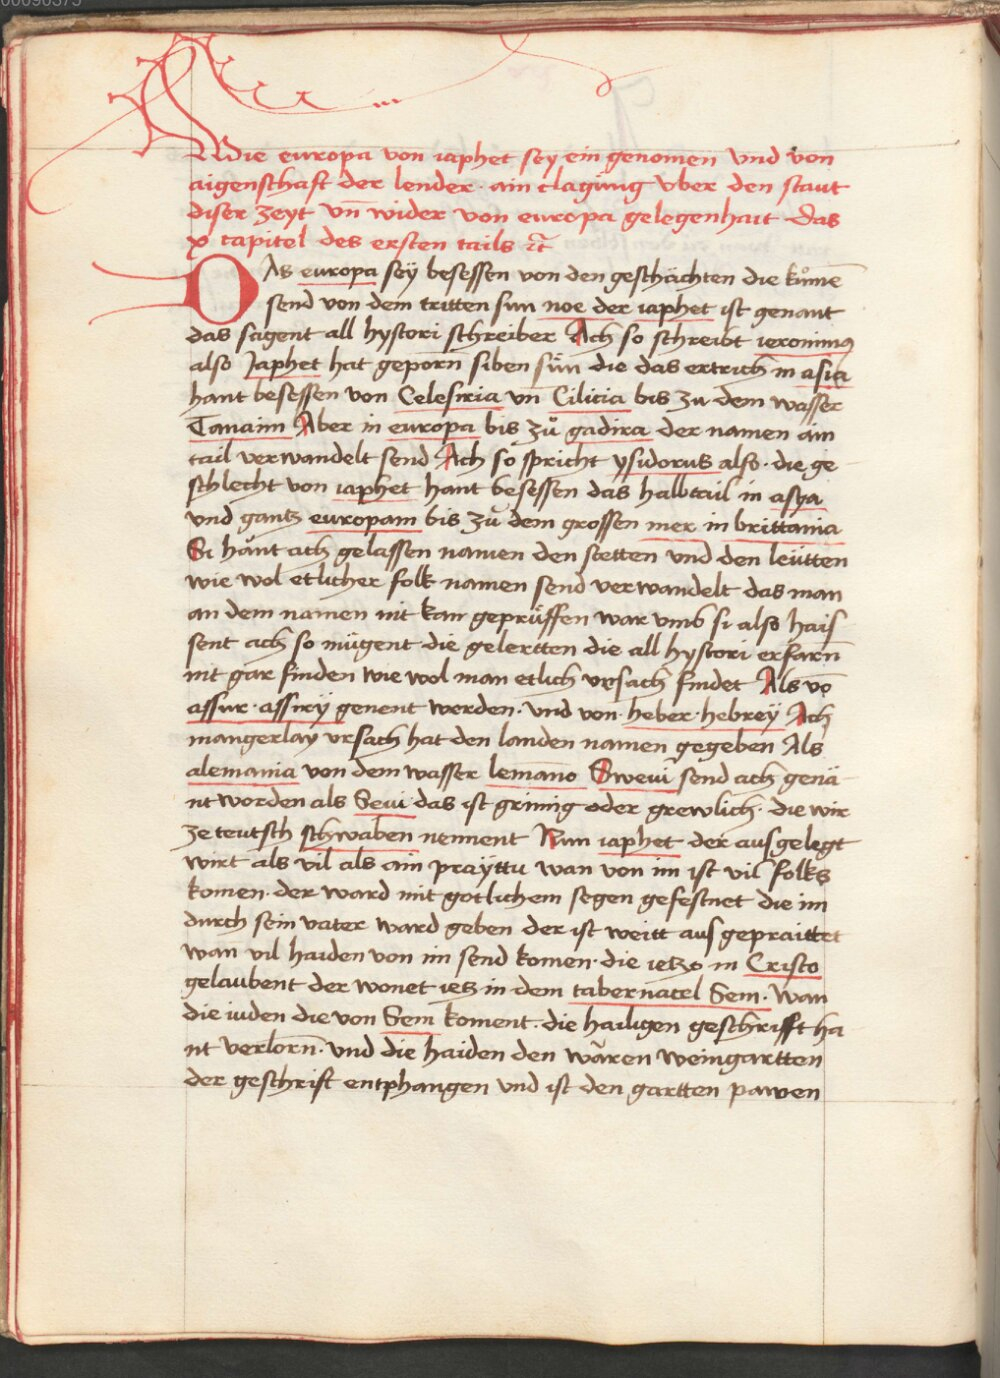 00090375
Wie europa von iaphet sey ein genomen vnd von
aigenschaft der lender · ain clagung vber den staut
diser zeyt vn̄ wider von europa gelegenhait das
x capitel des ersten tails ⁊c̄
DAs europa seÿ besessen von den geschächten die kůmē
send von dem tritten sun noe der iaphet ist genant
das sagent all hystori schreiber Ach so schreibt ieronimus
also Japhet hat geporn̄ siben sün̄ die das ertrich in asia
hant besessen von Celesiria vn̄ Cilicia bis zu dem wasser
Tanaim Aber in europa bis zů gadira der namen ain
tail verwandelt send Ach so spricht ysidorus also · die ge
schlecht von iaphet hant besessen das halbtail in asya
vnd gantz europam bis zů dem grossen mer in brittania
Si hänt ach gelassen namen den stetten vnd den leütten
wie wol etlicher folk namen send verwandelt das man
an dem namen nit kan geprüffen war vmb si also hais
sent ach so mügent die gelertten die all hystori erfarn̄
nit gar finden wie wol man etlich vrsach findet Als vō
assur · assirÿ genent werden · vnd von · heber · hebreÿ Ach
mangerlay vrsach hat den landen namen gegeben Als
alemania von dem wasser lemano Swevi send ach genā
nt worden als Sevi das ist grimig oder grewlich · die wir
ze teutsch schwaben nennent Nun iaphet der ausgelegt
wirt als vil als ain prayttu wan von im ist vil folks
komen · der ward mit gotlichem segen gefestnet die im
durch sein vater ward geben der ist weitt aus gepraittet
wan̄ vil haiden von im send komen · die ietzo in Cristo
gelaubent der wonet ietz in dem tabernacel Sem · wan
die iuden die von Sem koment · die hailigen geschrifft ha
nt verlorn̄ · vnd die haiden den wären weingartten
der geschrift entphangen vnd ist den gartten pawen